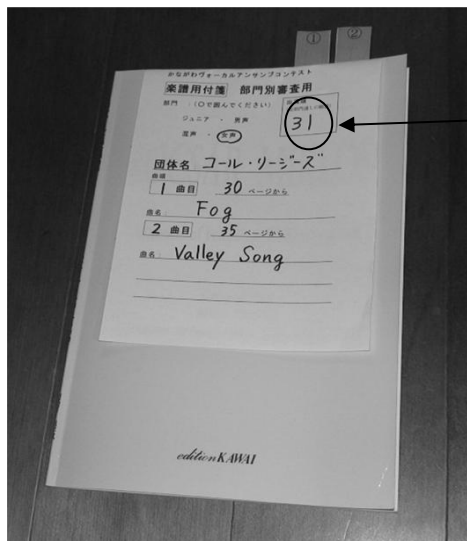 ① ②
かながわヴォーカルアンサンブルコンテスト
楽譜用付箋 部門別審査用
部門 :(〇で囲んでください)
ジュニア ・ 男声
31
混声 ・ 女声
団体名 コール・リージーズ
曲順
1 曲目 30 ページから
曲名: Fog
2 曲目 35 ページから
曲名: Valley Song
edition KAWAI